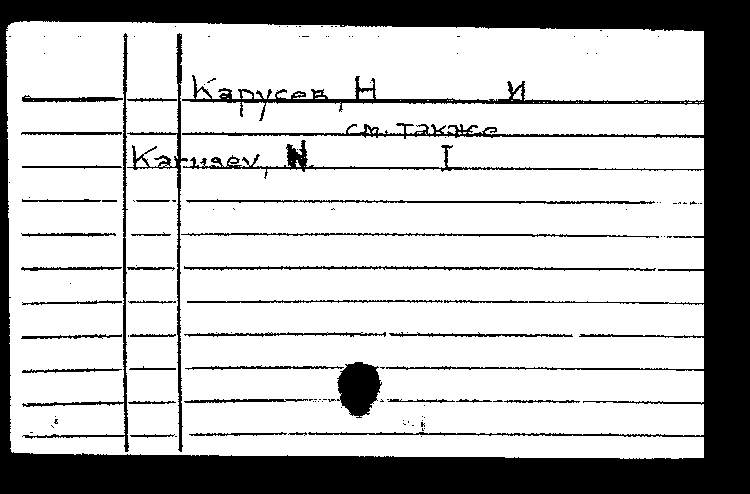 Карусев, Н И
см. также
Karusev, N I